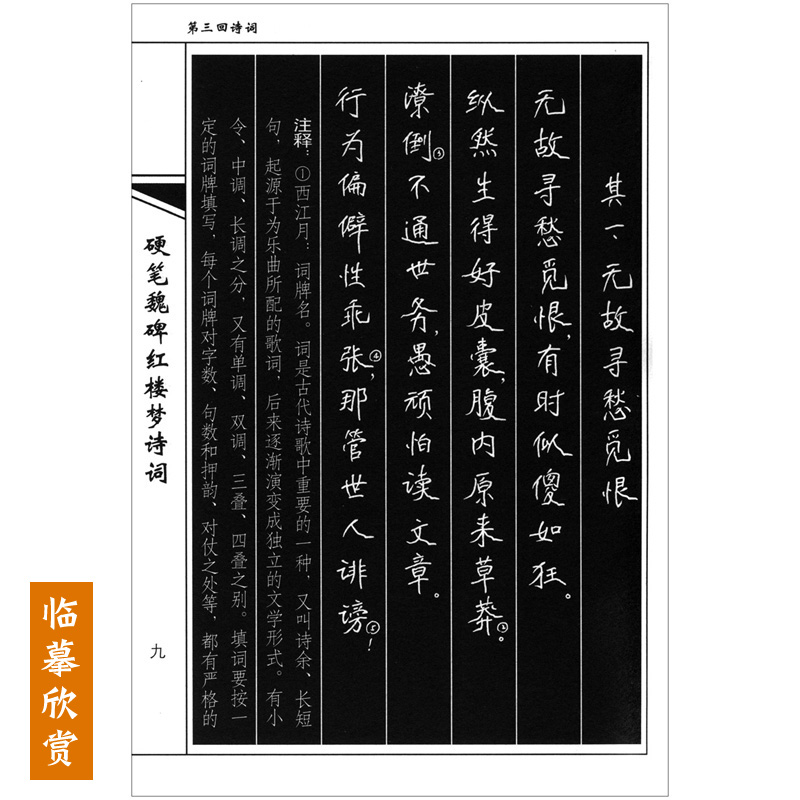 第三回诗词
其一、无故寻愁觅恨
无故寻愁觅恨，有时似傻如狂。
纵然生得好皮囊，腹内原来草莽②。
潦倒③不通世务，愚顽怕读文章。
行为偏僻性乖张④，那管世人诽谤⑤！
注释：①西江月：词牌名。词是古代诗歌中重要的一种，又叫诗余、长短
句，起源于为乐曲所配的歌词，后来逐渐演变成独立的文学形式。有小
令、中调、长调之分，又有单调、双调、三叠、四叠之别。填词要按一
定的词牌填写，每个词牌对字数、句数和押韵、对仗之处等，都有严格的
硬笔魏碑红楼梦诗词
九
临摹欣赏